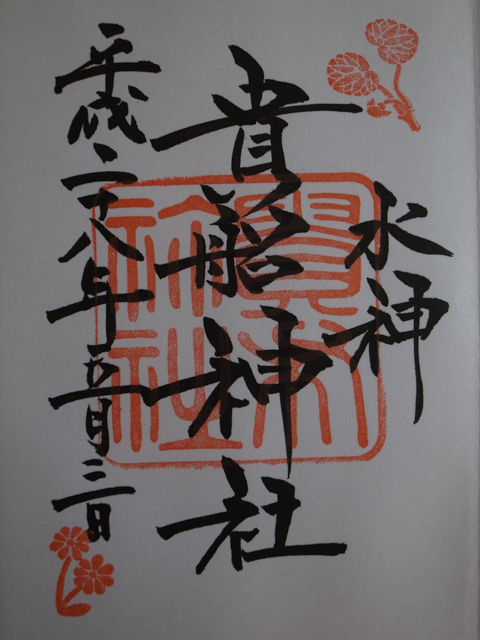 水神
貴船神社
平成二十八年五月三日